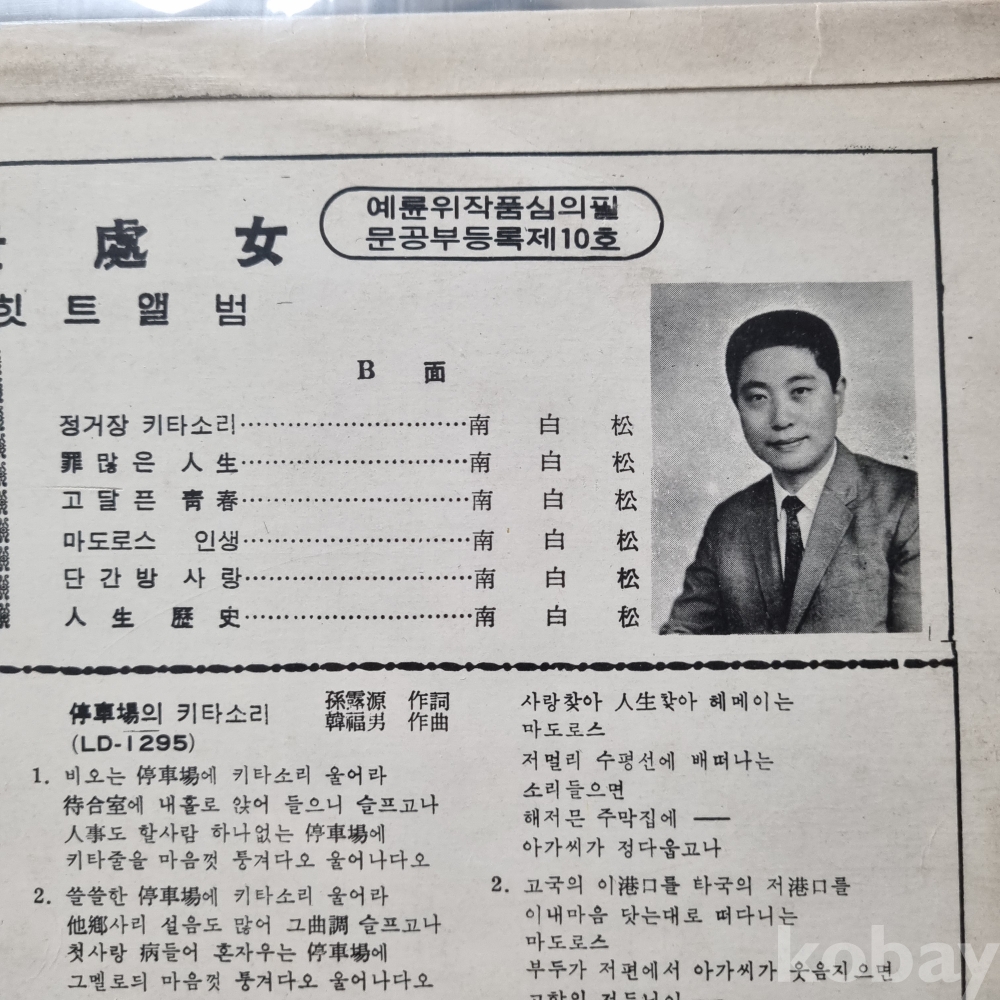 處 女
예륜위작품심의필
문공부등록제10호
힛 트 앨 범
B 面
정거장 키타소리……………………………南 白 松
罪 많 은 人 生……………………………南 白 松
고 달 픈 靑 春……………………………南 白 松
마도로스 인생……………………………南 白 松
단 간 방 사 랑……………………………南 白 松
人 生 歷 史……………………………南 白 松
停車場의 키타소리 孫露源 作詞
(LD-1295) 韓福男 作曲
1. 비오는 停車場에 키타소리 울어라
待合室에 내홀로 앉어 들으니 슬프고나
人事도 할사람 하나없는 停車場에
키타줄을 마음껏 퉁겨다오 울어나다오
2. 쓸쓸한 停車場에 키타소리 울어라
他鄕사리 설음도 많어 그曲調 슬프고나
첫사랑 病들어 혼자우는 停車場에
그멜로듸 마음껏 퉁겨다오 울어나다오
사랑찾아 人生찾아 헤메이는
마도로스
저멀리 수평선에 배떠나는
소리들으면
해저믄 주막집에 ──
아가씨가 정다웁고나
2. 고국의 이港口를 타국의 저港口를
이내마음 닷는대로 떠다니는
마도로스
부두가 저편에서 아가씨가 웃음지으면
kobay